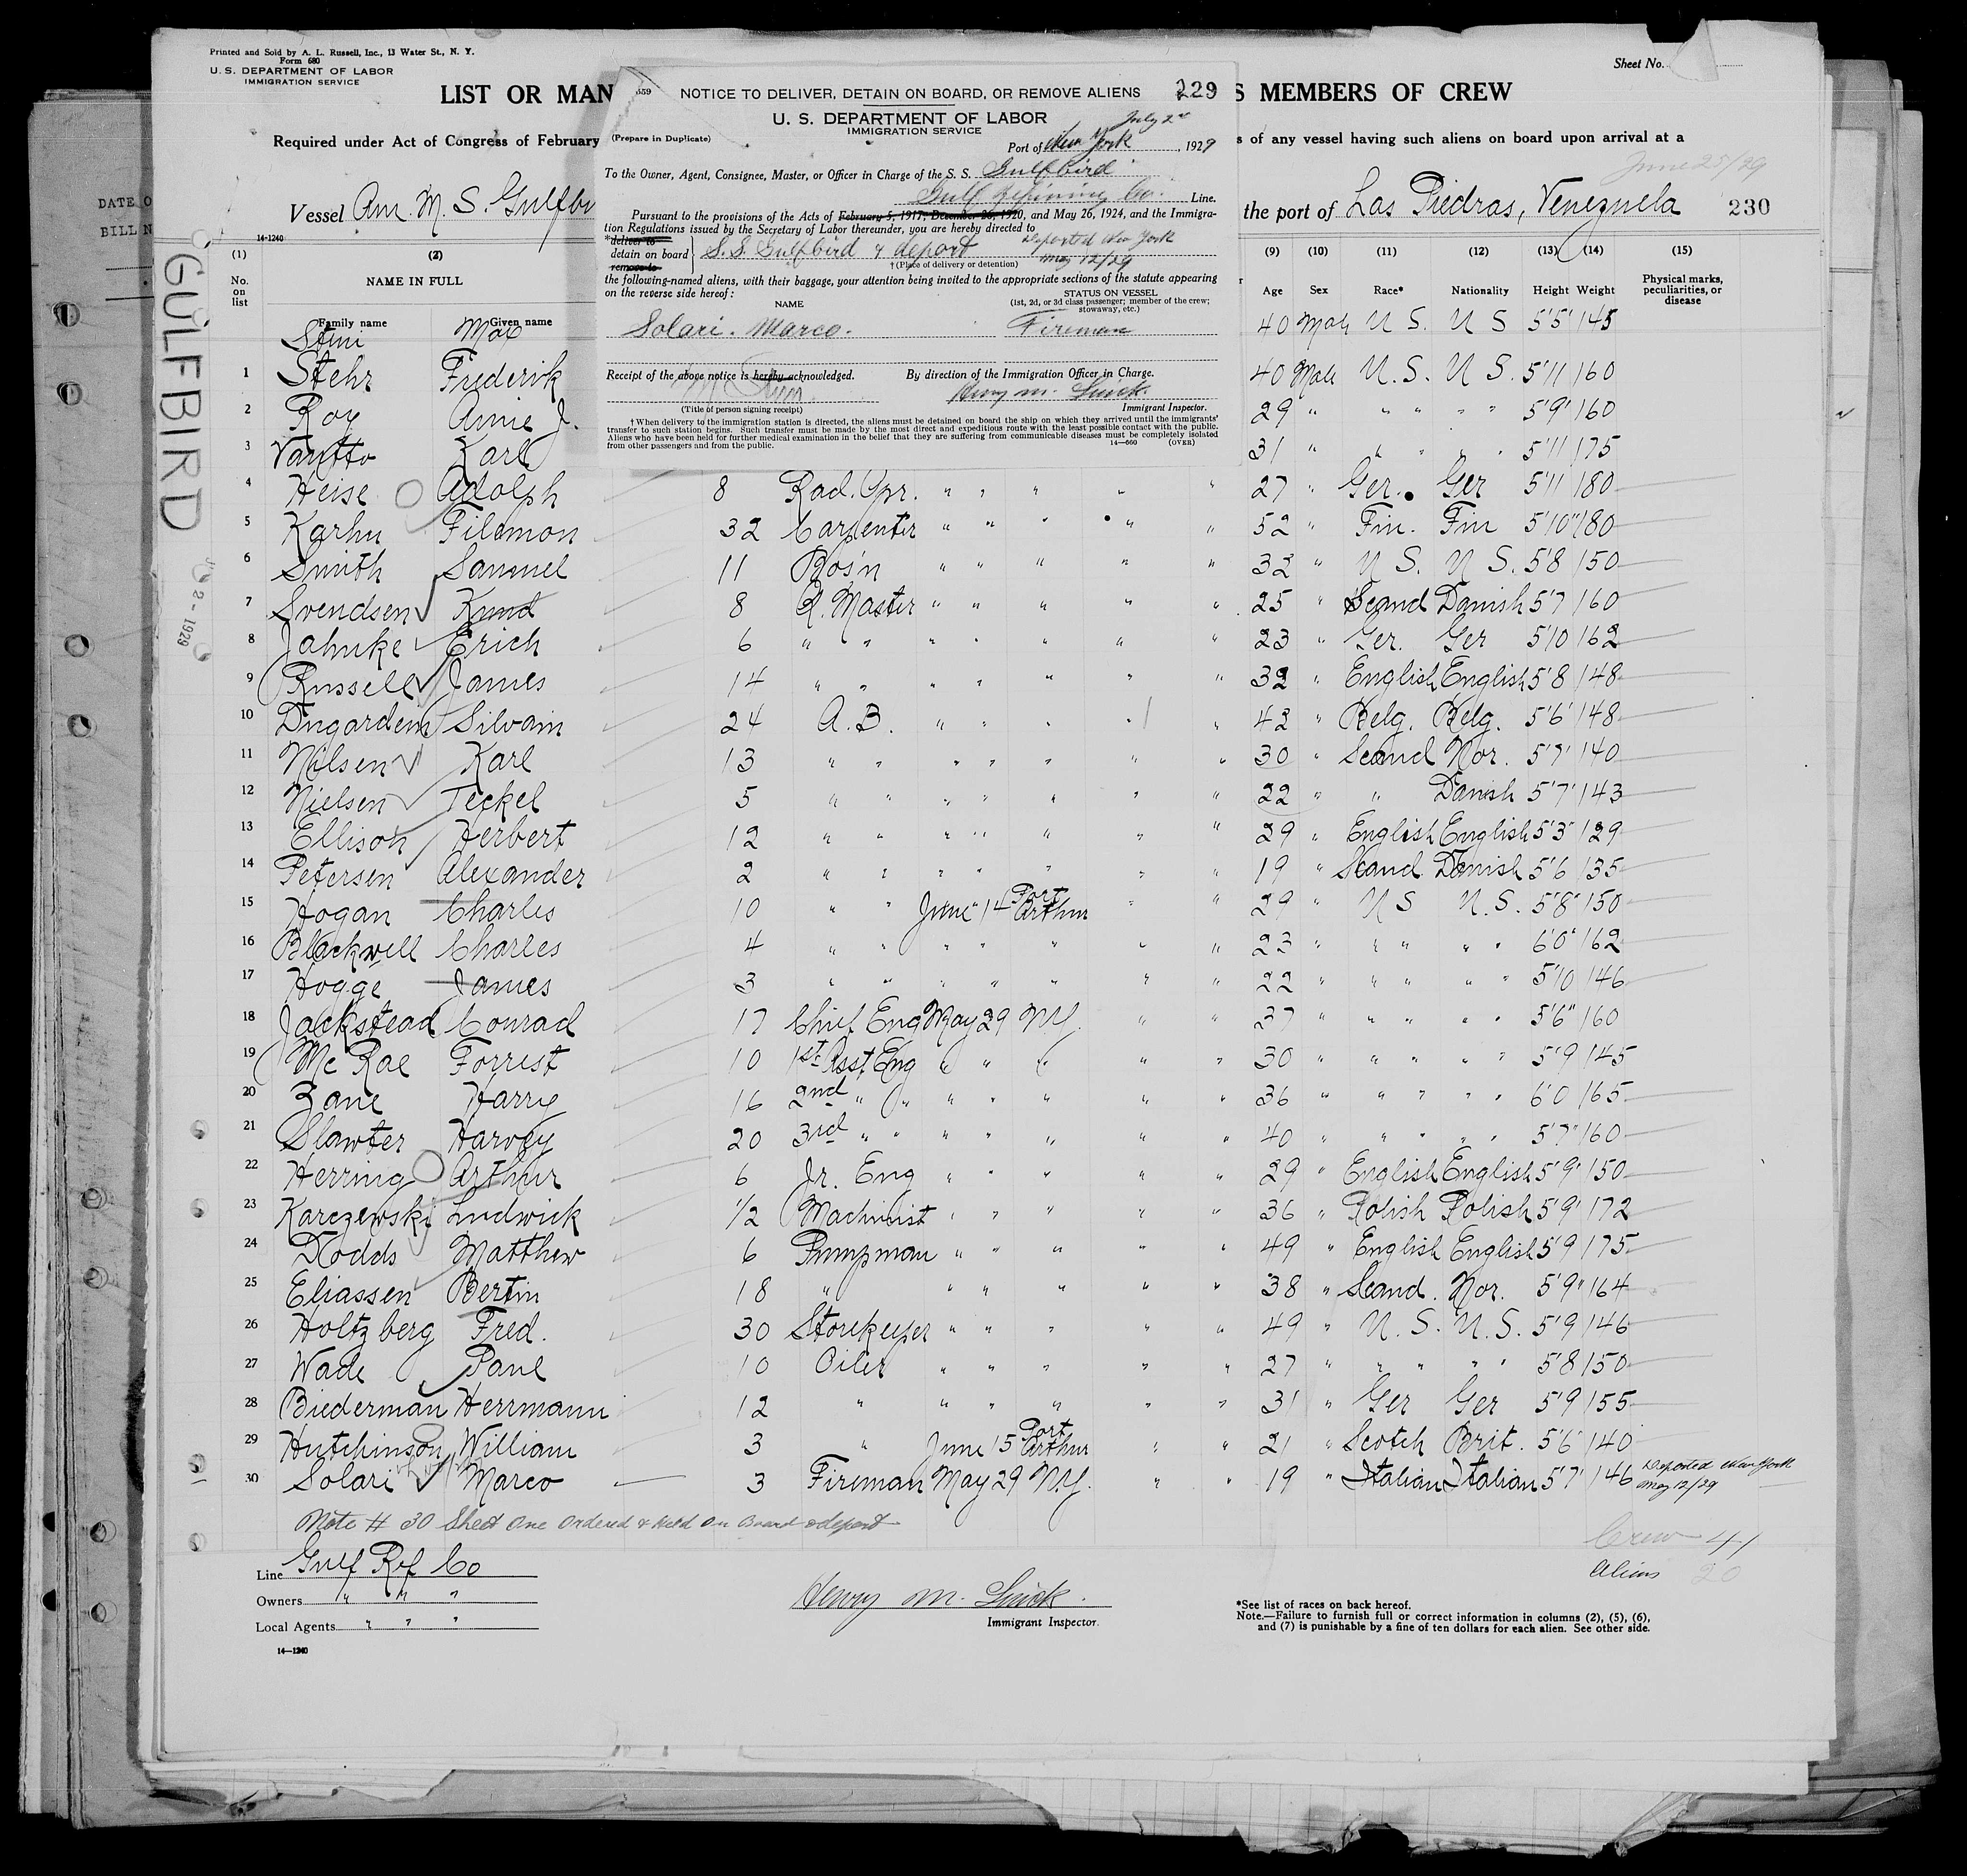 Printed and Sold by A. L. Russell, Inc., 13 Water St., N. Y.
Form 680
U. S. DEPARTMENT OF LABOR
IMMIGRATION SERVICE
Sheet No.
LIST OR MAN
S MEMBERS OF CREW
Required under Act of Congress of February
s of any vessel having such aliens on board upon arrival at a
June 25/29
Vessel Am. M. S. Gulfbi
the port of Las Piedras, Venezuela 230
559 NOTICE TO DELIVER, DETAIN ON BOARD, OR REMOVE ALIENS 229
U. S. DEPARTMENT OF LABOR
IMMIGRATION SERVICE
July 2nd
(Prepare in Duplicate)
Port of New York, 1929
To the Owner, Agent, Consignee, Master, or Officer in Charge of the S. S. Gulfbird
Gulf Refining Co. Line.
Pursuant to the provisions of the Acts of February 5, 1917; December 26, 1920, and May 26, 1924, and the Immigra-
tion Regulations issued by the Secretary of Labor thereunder, you are hereby directed to
*deliver to
detain on board
remove to
S.S. Gulfbird & deport
Deported New York
May 12/29
†(Place of delivery or detention)
the following-named aliens, with their baggage, your attention being invited to the appropriate sections of the statute appearing
on the reverse side hereof:
NAME
STATUS ON VESSEL
(1st, 2d, or 3d class passenger; member of the crew;
stowaway, etc.)
Solari. Marco. Fireman
Receipt of the above notice is hereby acknowledged.
By direction of the Immigration Officer in Charge.
M Stein
Henry M.
(Title of person signing receipt)
Immigrant Inspector.
†When delivery to the immigration station is directed, the aliens must be detained on board the ship on which they arrived until the immigrants'
transfer to such station begins. Such transfer must be made by the most direct and expeditious route with the least possible contact with the public.
Aliens who have been held for further medical examination in the belief that they are suffering from communicable diseases must be completely isolated
from other passengers and from the public.
14—660 (OVER)
14-1240
(1) (2) (9) (10) (11) (12) (13) (14) (15)
No. on list NAME IN FULL Age Sex Race* Nationality Height Weight Physical marks, peculiarities, or disease
Family name Given name
Stein Max 40 Male U S. U S 5'5" 145
1 Stehr Frederik 40 Male U.S. U S. 5'11 160
2 Roy J. 29 " " " " " 5'9" 160
3 Karl 31 " " " " " 5'11 175
4 Heise Adolph 8 Rad. Opr. " " " " " 27 " Ger. Ger 5'11 180
5 Karhu Filemon 32 Carpenter " " " " " 52 " Fin. Fin 5'10" 180
6 Smith Samuel 11 Bos'n " " " " " 32 " U S. U S. 5'8 150
7 Svendsen Knud 8 Q. Master " " " " " 25 " Scand Danish 5'7 160
8 Jahnke Erich 6 " " " " " " " 23 " Ger. Ger 5'10 162
9 Russell James 14 " " " " " " " 32 " English English 5'8 148
10 Silvain 24 A. B. " " " " " 42 " Belg. Belg. 5'6" 148
11 Nilsen Karl 13 " " " " " " " 30 " Scand Nor. 5'7" 140
12 Nielsen Teckel 5 " " " " " " " 22 " " Danish 5'7" 143
13 Ellison Herbert 12 " " " " " " " 29 " English English 5'3" 129
14 Petersen Alexander 2 " " " " " " " 19 " Scand Danish 5'6 135
15 Hogan Charles 10 " " June 14 Port Arthur " " 29 " U S U.S. 5'8" 150
16 Blackwell Charles 4 " " " " " " " 23 " " " " " 6'0" 162
17 Hogge James 3 " " " " " " " 22 " " " " " 5'10 146
18 Jackstead Conrad 17 Chief Eng May 29 N.Y. " " 37 " " " " " 5'6" 160
19 Mc Rae Forrest 10 1st Asst Eng " " " " " 30 " " " " " 5'9 145
20 Zane Harry 16 2nd " " " " " " " 36 " " " " " 6'0 165
21 Slawter Harvey 20 3rd " " " " " " " 40 " " " " " 5'7" 160
22 Herring Arthur 6 Jr. Eng " " " " " 29 " English English 5'9" 150
23 Karczewski Ludwick 1/2 Machinist " " " " " 36 " Polish Polish 5'9" 172
24 Dodds Matthew 6 Pumpman " " " " " 49 " English English 5'9 175
25 Eliassen Bertin 18 " " " " " " 38 " Scand. Nor. 5'9" 164
26 Holtzberg Fred. 30 Storekeeper " " " " " 49 " U. S. U. S. 5'9 146
27 Wade Paul 10 Oiler " " " " " 27 " " " " " 5'8 150
28 Biederman Herrmann 12 " " " " " " 31 " Ger Ger 5'9 155
29 Hutchinson William 3 " June 15 Port Arthur " " 21 " Scotch Brit. 5'6" 140
30 Solari Marco 3 Fireman May 29 N.Y. " " 19 " Italian Italian 5'7" 146 Deported New York May 12/29
Note # 30 Sheet One Ordered & Held On Board & deport
Crew 41
Aliens 20
Line Gulf Ref Co
Owners " " "
Local Agents " " "
Henry M.
Immigrant Inspector.
*See list of races on back hereof.
Note.—Failure to furnish full or correct information in columns (2), (5), (6),
and (7) is punishable by a fine of ten dollars for each alien. See other side.
14—1240
GULFBIRD
2 - 1929
DATE O
BILL N